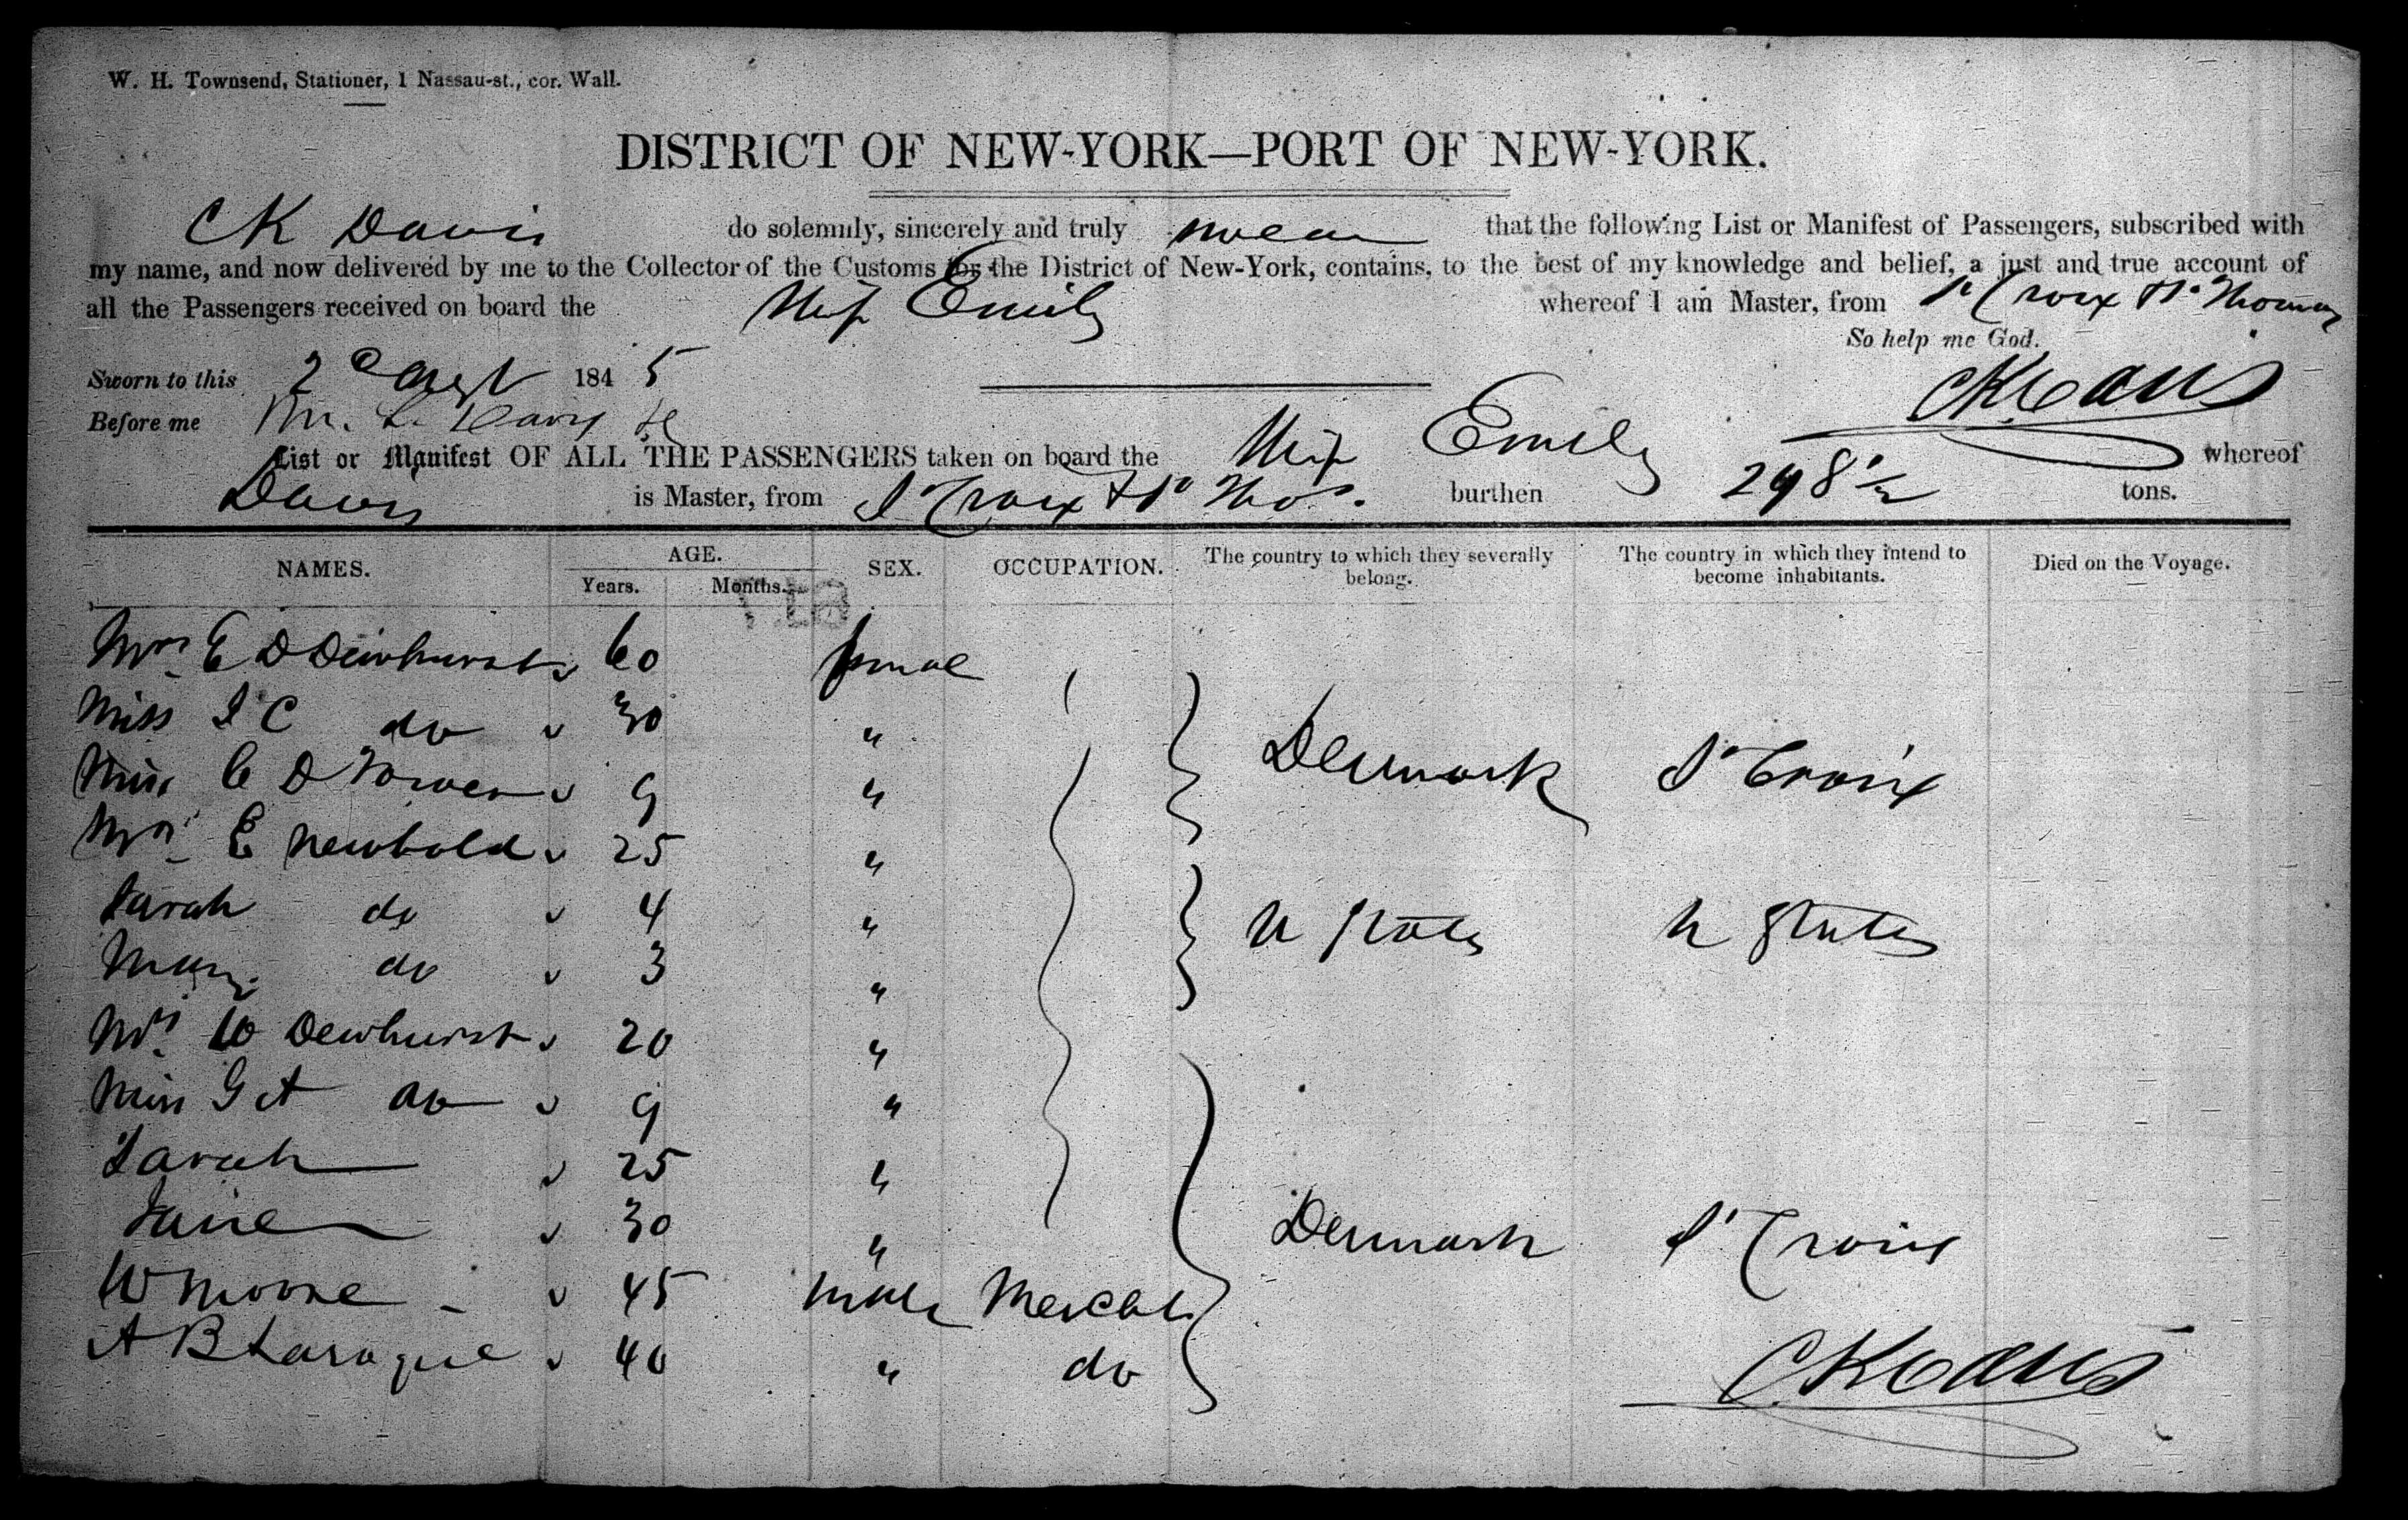 W. H. Townsend, Stationer, 1 Nassau-st., cor. Wall.
DISTRICT OF NEW-YORK—PORT OF NEW-YORK.
C K Davis do solemnly, sincerely and truly swear that the following List or Manifest of Passengers, subscribed with
my name, and now delivered by me to the Collector of the Customs for the District of New-York, contains, to the best of my knowledge and belief, a just and true account of
all the Passengers received on board the Ship Emily whereof I am Master, from St Croix & St Thomas
So help me God.
Sworn to this 2d Augt 1845
C K Davis
Before me
List or Manifest OF ALL THE PASSENGERS taken on board the Ship Emily whereof
Davis is Master, from St Croix & St Thos. burthen 298 1/2 tons.
NAMES. AGE. SEX. OCCUPATION. The country to which they severally belong. The country in which they intend to become inhabitants. Died on the Voyage.
Years. Months.
Mrs E D Dewhurst 60 female
Miss I C do 30 "
Miss C D 9 " Denmark St Croix
Mrs E Newbold 25 "
Sarah do 4 " U States U States
Mary do 3 "
Mrs W Dewhurst 20 "
Miss G A do 9 "
Sarah 25 "
Jane 30 " Denmark St Croix
W Moore 45 male
A B Laroque 40 " do
C K Davis